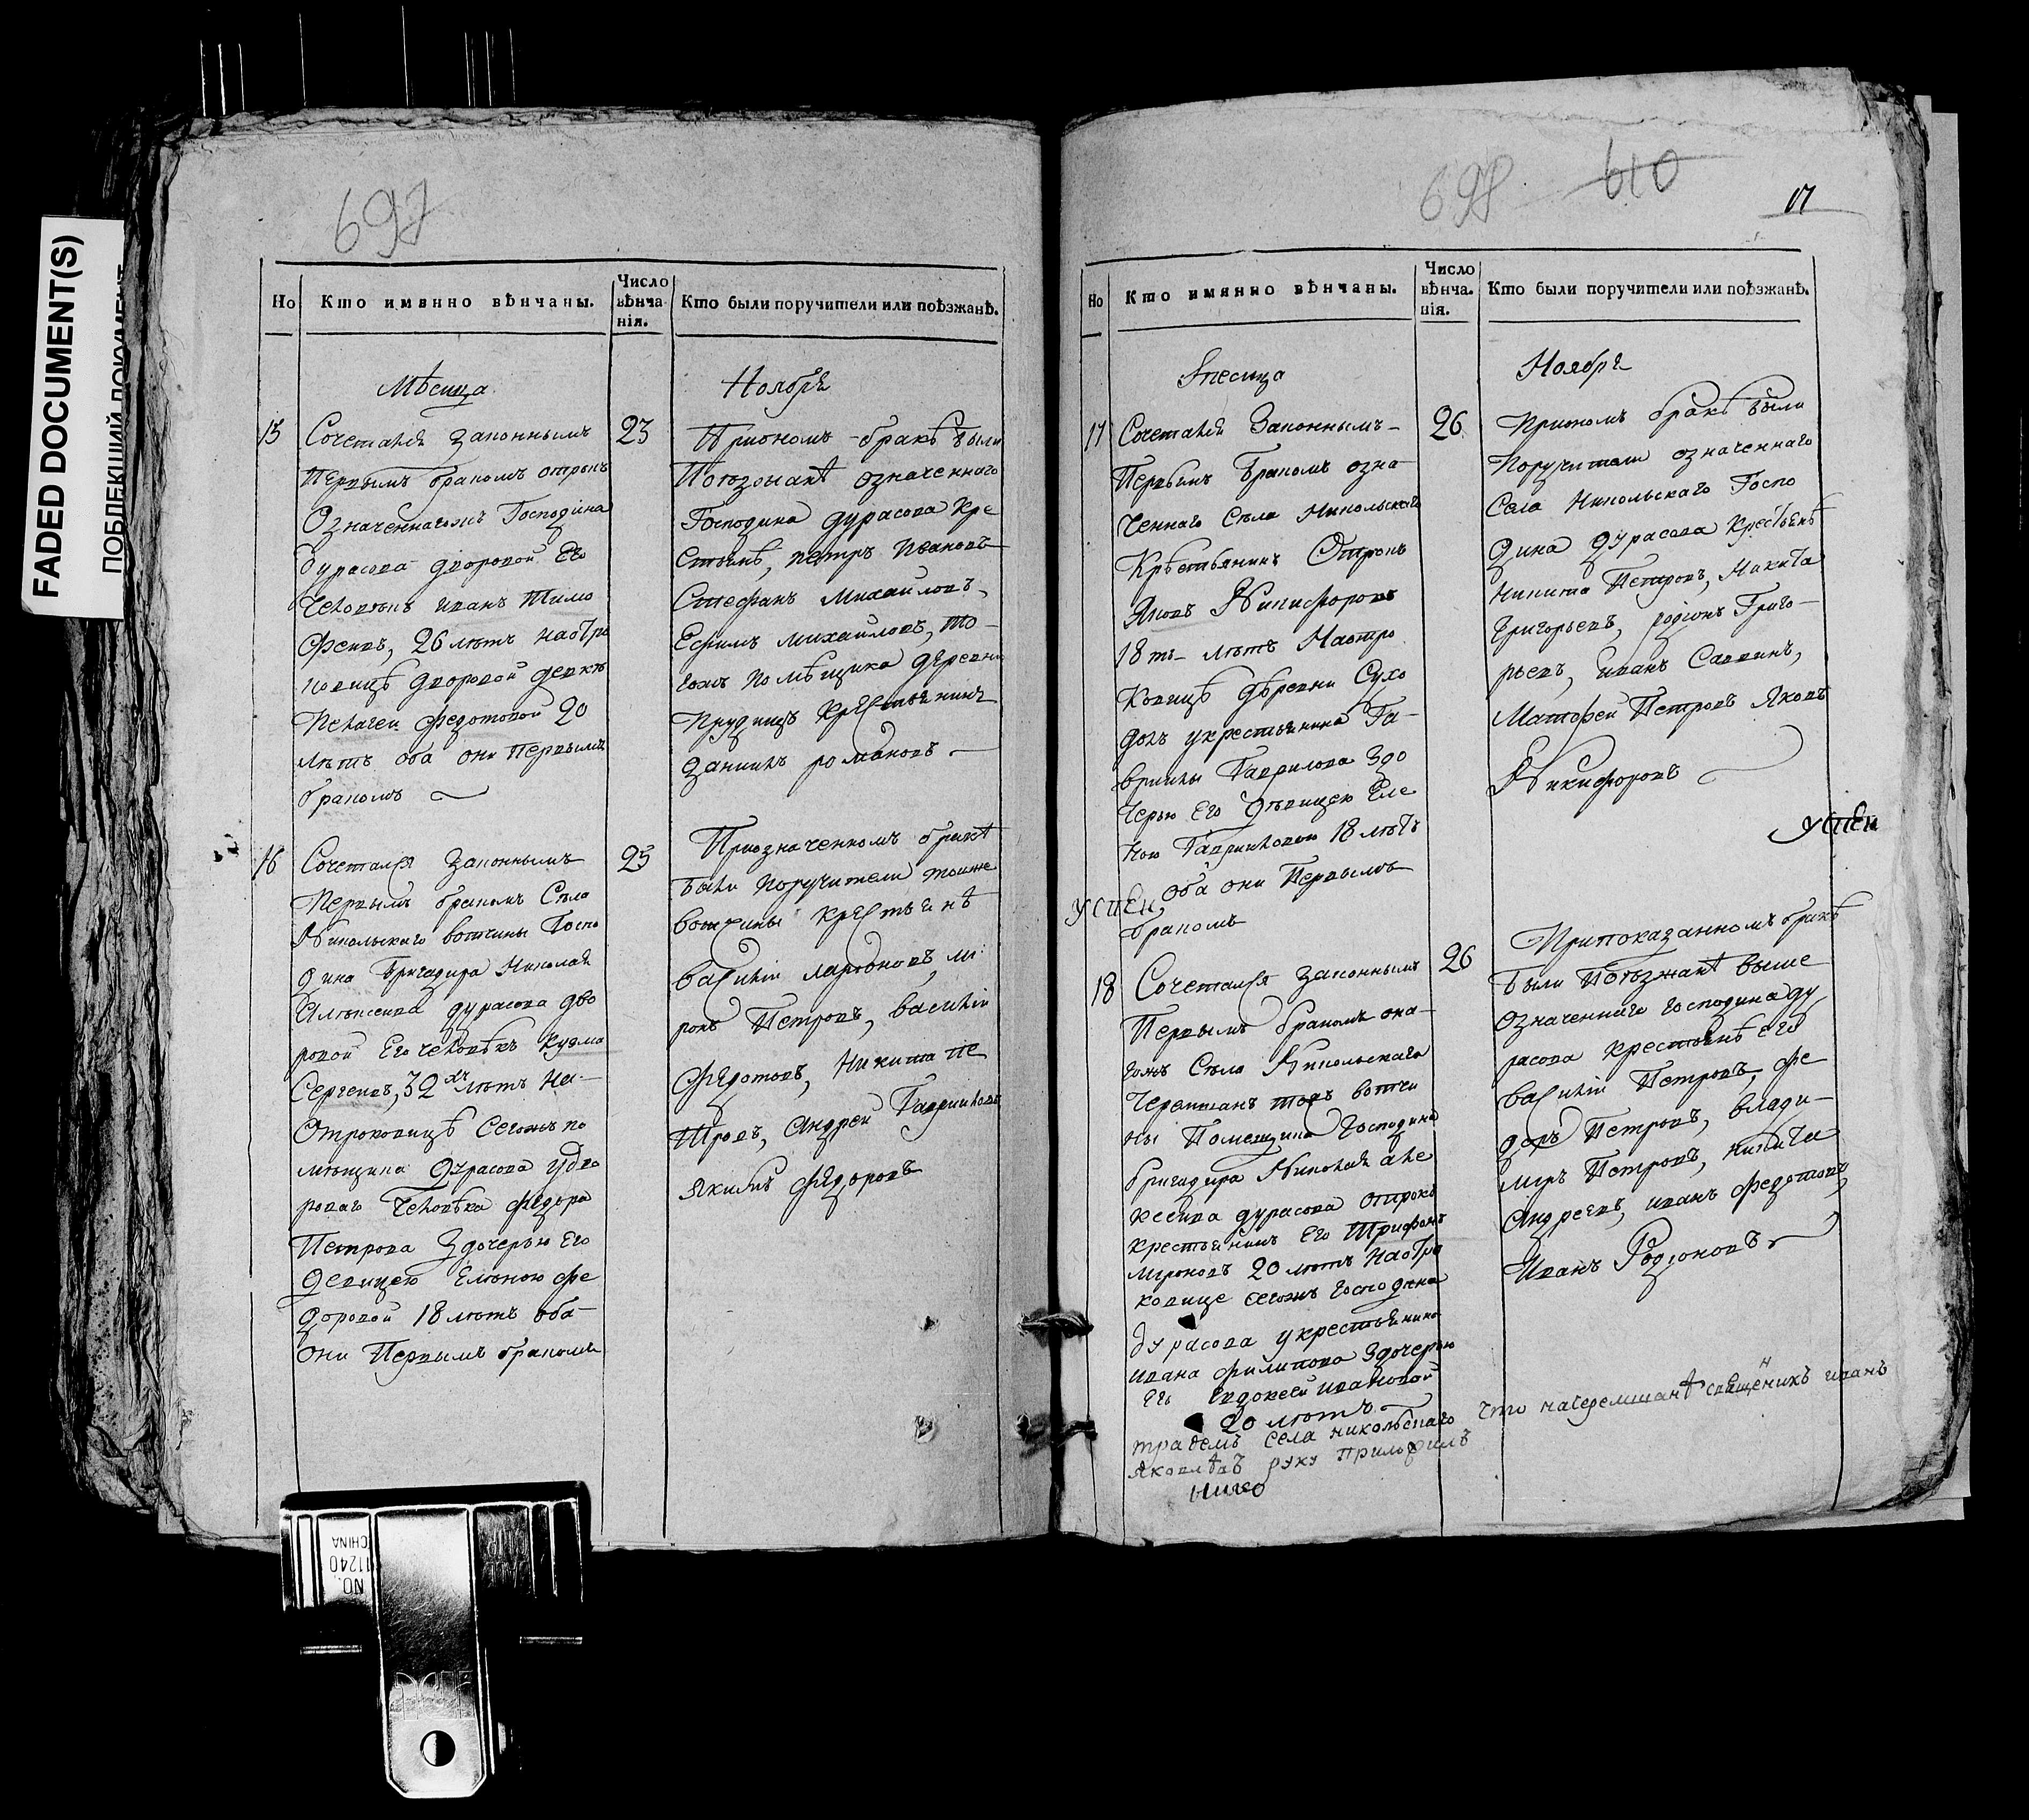 FADED DOCUMENT(S)
ПОБЛЕКШИЙ ДОКУМЕНТ
697
Но
Кто имянно вѣнчаны.
Число вѣнчанія.
Кто были поручители или поѣзжанѣ.
Мѣсица
Ноября
15
Сочетался законнымъ
Первымъ бракомъ отрокъ
Означеннагожъ Господина
дурасова дворовой Его
Человѣкъ иванъ Тимо
феивъ, 26 лѣтъ наотро
ковицѣ дворовой девкѣ
Пелагеи федотовой 20
лѣтъ оба они Первымъ
бракомъ
23
Приономъ бракѣ были
Поѣзжанѣ означеннаго
Господина дурасова кре
стьянѣ, петръ Ивановъ
Стефанъ Михаиловъ,
Ефимъ михаиловъ, то
гожъ помѣщика деревни
Прудищъ крестьянинъ
данилъ романовъ
16
Сочетался законнымъ
Первымъ бракомъ Села
Никольскаго вотчины Госпо
дина Бригадира Николая
Алексеива дурасова дво
ровой Его человѣкъ кузма
Сергеивъ, 32хъ лѣтъ на
Отроковицѣ сегожъ по
мѣщика дурасова удво
роваго Человѣка федора
Петрова здочерью Его
девицею Еленою фе
доровой 18 лѣтъ оба
они Первымъ бракомъ
25
Приозначенномъ бракѣ
были поручители тояже
вотчины крестьянѣ
василіи ларионовъ, ми
ронъ Петровъ, василіи
федотовъ, Никита пе
тровъ, андреи Гавриловъ
якимъ федоровъ
698
610
17
Но
Кто имянно вѣнчаны.
Число вѣнча. нія.
Кто были поручители или поѣзжанѣ.
Месица
Ноября
17
Сочетался Законнымъ
Первымъ Бракомъ озна
ченнаго Села Никольскаго
Крестьянинъ Отрокъ
Яковъ Никифоровъ
18 ть лѣтъ Наотро
ковицѣ деревни Сухо
долъ укрестьянина Га
врилы Гаврилова здо
черью Его дѣвицею Еле
ною Гавриловою 18 лѣтъ
оба они Первымъ
бракомъ
26
Притомъ бракѣ были
Поручители означеннаго
Села Никольскаго Госпо
дина дурасова крестьянѣ
Никита Петровъ, Никита
Григорьевъ, родіонъ Григо
рьевъ, иванъ Саввинъ,
Матфей Петровъ Яковъ
Никифоровъ
успен
успен
18
Сочетался законнымъ
Первымъ бракомъ она
гожъ Села Никольскаго
Черемшанъ тожъ вотчи
ны Помещика Господина
бригадира Николая але
ксеива дурасова отрокъ
крестьянинъ Его Трифонъ
мироновъ 20 лѣтъ наотро
ковице сегожъ господина
дурасова укрестьянина
ивана филипова здочерью
Его Евдокеей ивановой
20 лѣтъ
26
Припоказанномъ бракѣ
были Поѣзжанѣ выше
означеннаго господина ду
расова крестьянѣ его
василіи Петровъ, фе
доръ Петровъ, влади
миръ Петровъ, никита
Андреевъ, иванъ федотовъ,
Иванъ Родіоновъ
села никольскаго
что начеремшанѣ свещенникъ иванъ
яковлѣвъ руку приложилъ